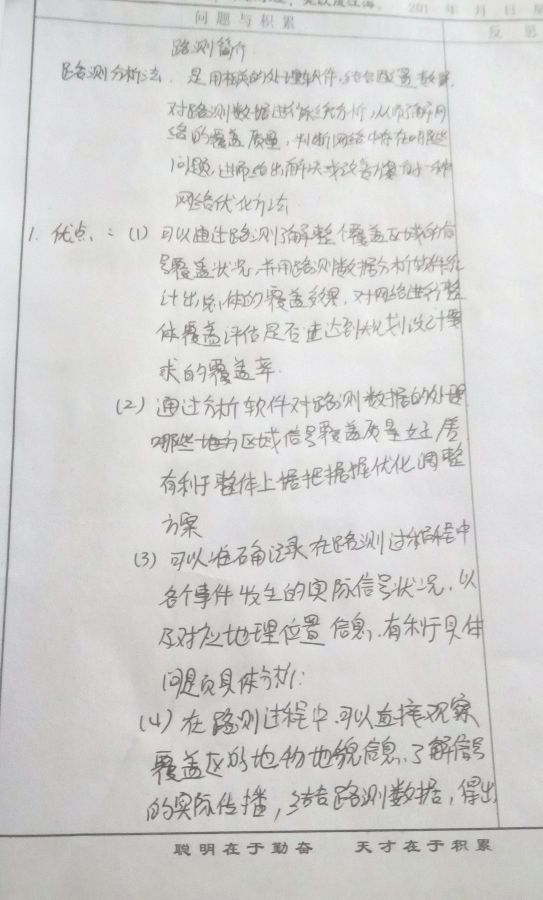 201 年 月 日 星
问题与积累
反思
路测简介
路测分析法，是用相关的处理软件，结合位置数据，
对路测数据进行系统分析，从而了解网
络的覆盖质量，判断网络中存在哪些
问题，进而给出解决或改善方案的一种
网络优化方法
1. 优点：(1) 可以通过路测了解整个覆盖区域的信
号覆盖状况，并用路测数据分析软件统
计出总体的覆盖效果，对网络进行整
体覆盖评估是否达到规划设计要
求的覆盖率
(2) 通过分析软件对路测数据的处理
哪些地方区域信号覆盖质量
有利于整体上把握优化调整
方案
(3) 可以准确记录在路测过程中
各个事件发生的实际信号状况，以
及对应地理位置信息，有利于具体
问题具体分析；
(4) 在路测过程中，可以直接观察
覆盖区的地物地貌信息，了解信号
的实际传播，结合路测数据，得出
聪明在于勤奋 天才在于积累